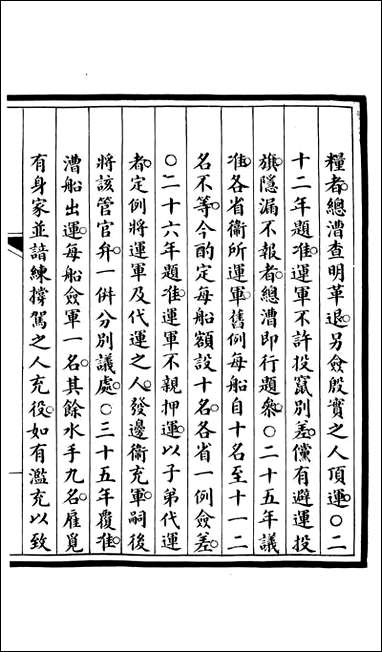 糧者總漕查明革退另僉殷實之人頂運○二
十二年題准運軍不許投竄別差儻有避運投
旗隱漏不報者總漕即行題叅○二十五年議
准各省衞所運軍舊例每船自十名至十一二
名不等今酌定每船額設十名各省一例僉差
○二十六年題准運軍不親押運以子弟代運
者定例將運軍及代運之人發邊衞充軍嗣後
將該管官弁一倂分別議處○三十五年覆准
漕船出運每船僉軍一名其餘水手九名雇覓
有身家並諳練撐駕之人充役如有濫充以致